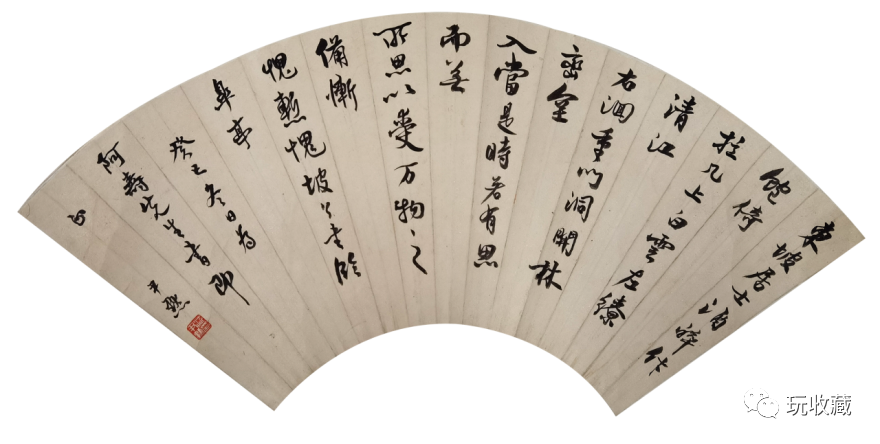 東坡居士酒醉飯
飽倚
於几上白雲左繚
清江
右洄重門洞開林
巒坌
入當是時若有思
而無
所思以受万物之
備慚
愧慙愧坡公書臨
皋亭
癸巳冬日為
阿壽先生書即
正
尹默
玩收藏